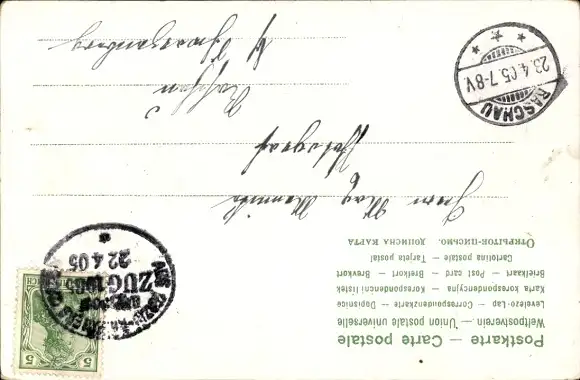 Postkarte — Carte postale
Weltpostverein — Union postale universelle
Levelező-Lap — Correspondenzkarte — Dopisnice
Karta korespondencyjna — Korespondenční lístek
Briefkaart — Post card — Brefkort — Brevkort
Cartolina postale — Tarjeta postal
Открытое письмо. дописна карта
Herrn Max
Fotograf
b/ Schwarzenberg
RASCHAU
23.4.05.7-8V.
ZUG 1065
22.4.05
5 5